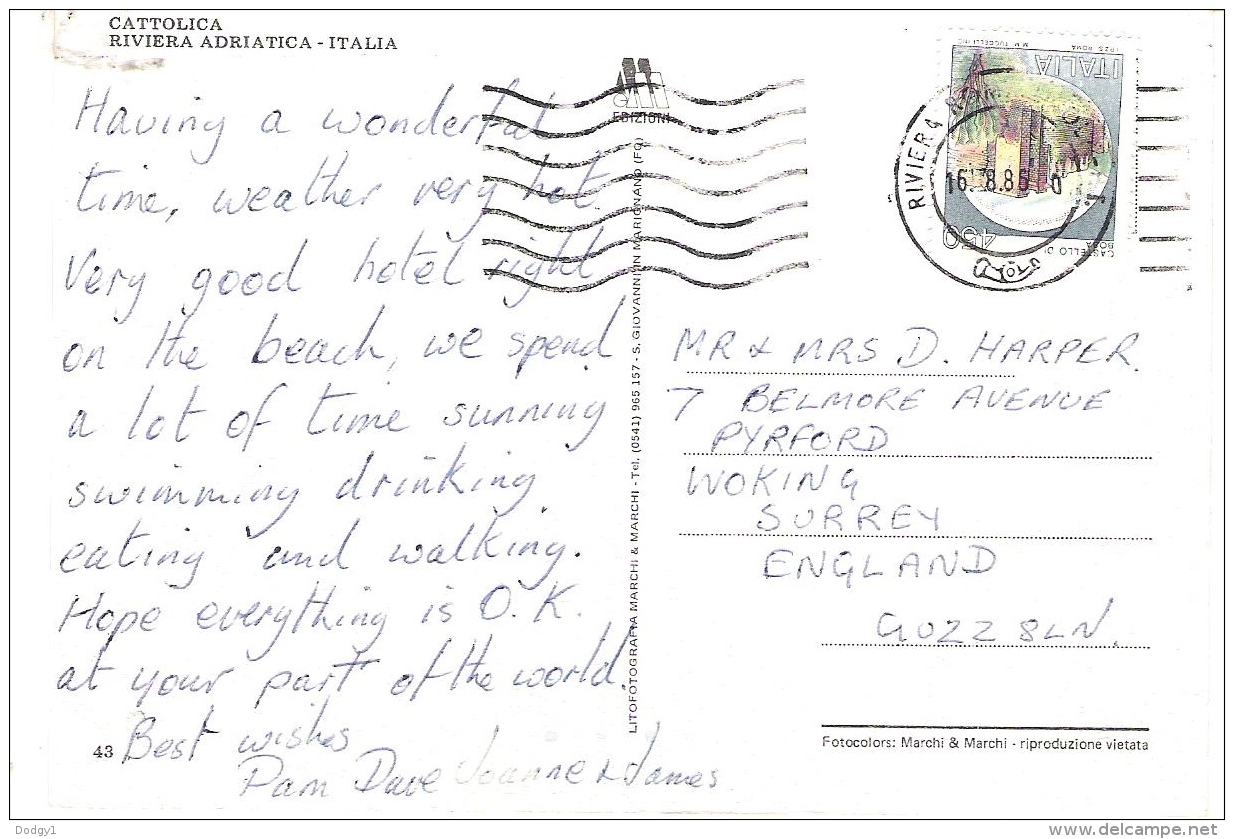 CATTOLICA
RIVIERA ADRIATICA - ITALIA
Having a wonderful
time, weather very hot.
Very good hotel right
on the beach, we spend
a lot of time sunning
swimming drinking
eating and walking.
Hope everything is O.K.
at your part of the world.
Best wishes
Pam Dave Joanne & James
43
EDIZIONI
LITOFOTOGRAFIA MARCHI & MARCHI - Tel. (0541) 965 157 - S. GIOVANNI IN MARIGNANO (FO)
ITALIA
450
CASTELLO DI
BOSA
I.P.Z.S. ROMA
M.M. TUCCELLI INC.
RIVIERA
16 8.86
MR & MRS D. HARPER.
7 BELMORE AVENUE
PYRFORD
WOKING
SURREY
ENGLAND
GU22 8LN.
Fotocolors: Marchi & Marchi - riproduzione vietata
Dodgy1
delcampe.net